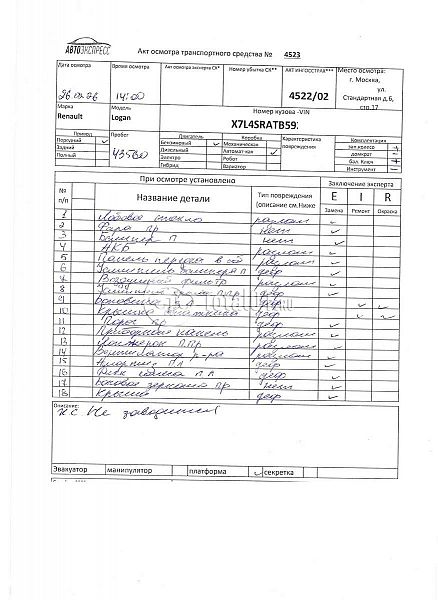 АВТОЭКСПРЕСС
Акт осмотра транспортного средства № 4523
Дата осмотра Время осмотра Акт осмотра эксперта СК* Номер убытка СК** АКТ ИНГОССТРАХ*** Место осмотра:
г. Москва,
ул.
Стандартная д.6,
стр.17
26.03.26 14:00 4522/02
Марка Модель Номер кузова -VIN
Renault Logan X7L4SRATB59
Привод Пробег Двигатель Коробка Характеристика повреждения Комплектация
Передний Бензиновый Механическая зап.колесо
Задний Дизельный Автомат-кая домкрат
Полный Электро Робот бал. Ключ
Гибрид Вариатор Инструмент
При осмотре установлено Заключение эксперта
№ п/п Название детали Тип повреждения (описание см.Ниже E I R
Замена Ремонт Окраска
1 Лобовое стекло разлом
2 Фара пр нет
3 Бампер П нет
4 АКБ разлом
5 Панель передка в сб разлом
6 Усилитель бампера П деф
7 Воздушный фильтр разлом
8
9 Боковина
10 Крышка багажника деф
11
12 Приборная панель разлом
13 Лонжерон П пр разлом
14
15 деф
16 деф
17 Боковая зеркало пр нет
18 Крыша деф
Описание:
Не заводится
Эвакуатор манипулятор платформа секретка